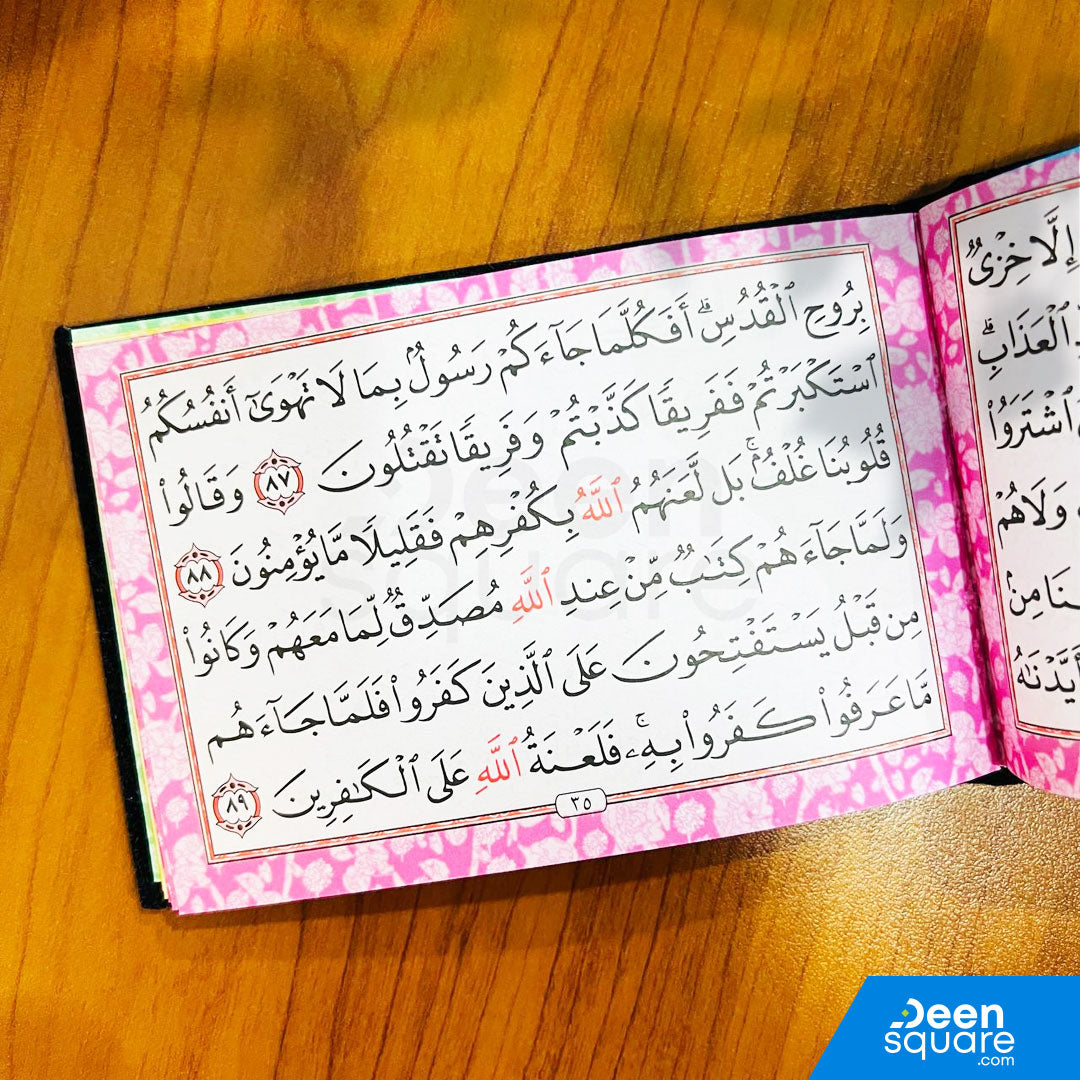 بِرُوحِ ٱلْقُدُسِ ۗ أَفَكُلَّمَا جَآءَكُمْ رَسُولٌۢ بِمَا لَا تَهْوَىٰٓ أَنفُسُكُمُ
ٱسْتَكْبَرْتُمْ فَفَرِيقًا كَذَّبْتُمْ وَفَرِيقًا تَقْتُلُونَ ٨٧ وَقَالُوا۟
قُلُوبُنَا غُلْفٌۢ ۚ بَل لَّعَنَهُمُ ٱللَّهُ بِكُفْرِهِمْ فَقَلِيلًا مَّا يُؤْمِنُونَ ٨٨
وَلَمَّا جَآءَهُمْ كِتَٰبٌ مِّنْ عِندِ ٱللَّهِ مُصَدِّقٌ لِّمَا مَعَهُمْ وَكَانُوا۟
مِن قَبْلُ يَسْتَفْتِحُونَ عَلَى ٱلَّذِينَ كَفَرُوا۟ فَلَمَّا جَآءَهُم
مَّا عَرَفُوا۟ كَفَرُوا۟ بِهِۦ ۚ فَلَعْنَةُ ٱللَّهِ عَلَى ٱلْكَٰفِرِينَ ٨٩
٣٥
إِلَّا خِزْىٌ
ٱلْعَذَابِ ۗ
ٱشْتَرَوُا۟
وَلَا هُمْ
مِنۢ
أَيَّدْنَٰهُ
Deen
square
Deen
square
.com